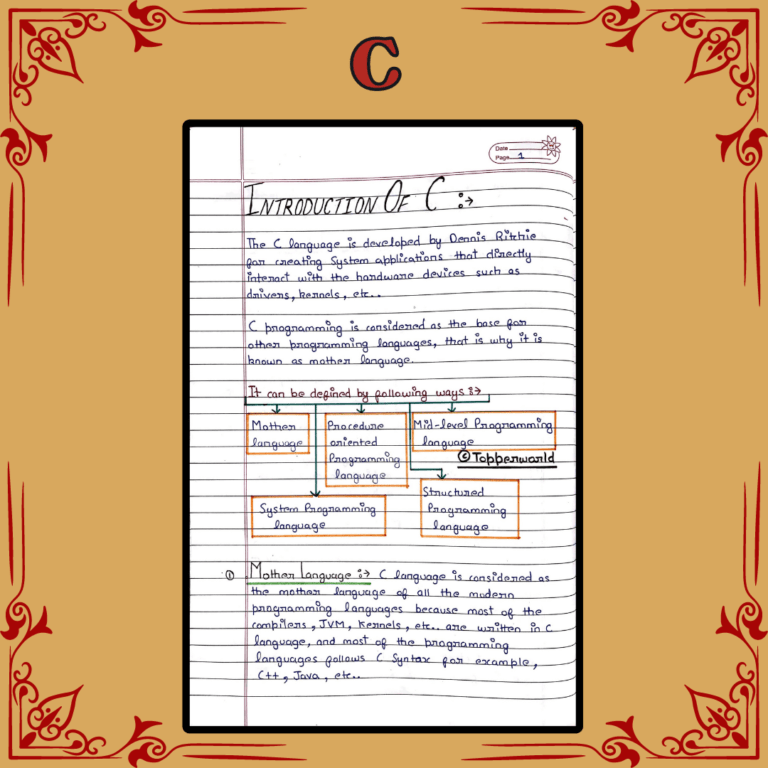 C
Date
Page 1
INTRODUCTION OF C :→
The C language is developed by Dennis Ritchie
for creating System applications that directly
interact with the hardware devices such as
drivers, kernels, etc..
C programming is considered as the base for
other programming languages, that is why it is
known as mother language.
It can be defined by following ways :→
Mother
language
Procedure
oriented
Programming
language
Mid-level Programming
language
©Topperworld
System Programming
language
Structured
Programming
language
① Mother Language :→ C language is considered as
the mother language of all the modern
programming languages because most of the
compilers, JVM, Kernels, etc.. are written in C
language, and most of the programming
languages follows C Syntax for example,
C++, Java, etc..